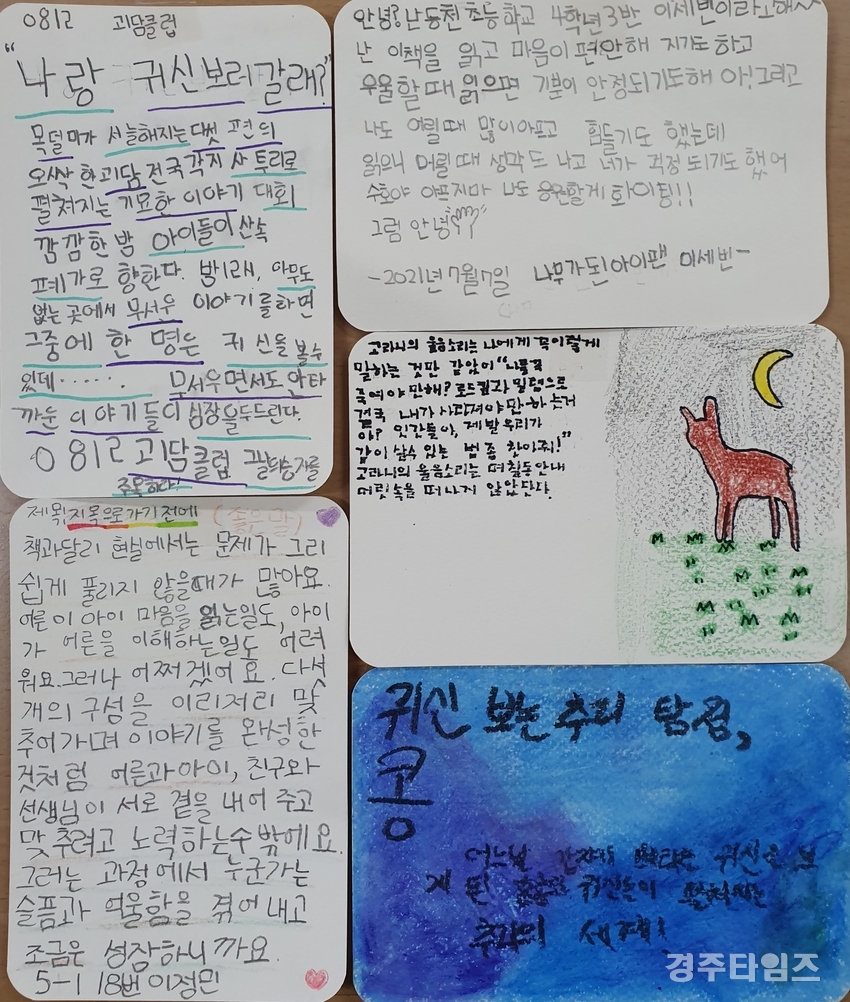 0812 괴담클럽
"나랑 귀신 보러 갈래?"
목덜미가 서늘해지는 다섯 편의
오싹 한 괴담 전국 각지 사투리로
펼쳐지는 기묘한 이야기 대회
깜깜한 밤 아이들이 산속
폐가로 향한다. 밤 1시, 아무도
없는 곳에서 무서운 이야기를 하면
그중에 한 명은 귀신을 볼 수
있데......... 무서우면서도 안타
까운 이야기들이 심장을 두드린다.
0812 괴담클럽
주목하라!
안녕? 난 동천초등학교 4학년 3반 이세빈이라고해^^
난 이책을 읽고 마음이 편안해 지기도 하고
우울할 때 읽으면 기분이 안정되기도해 아! 그리고
나도 어릴때 많이 아프고 힘들기도 했는데
읽으니 어릴때 생각도 나고 너가 걱정 되기도 했어
수호야 아프지마 나도 응원할게 화이팅!!
그럼 안녕
-2021년 7월 7일 나무가 된 아이팬 이세빈-
고라니의 울음소리는 나에게 꼭 이렇게
말하는 것만 같았어 "나를 꼭
죽여야만 해? 로드킬과 밀렵으로
결국 내가 사라져야만 하는거
야? 인간들아, 제발 우리가
같이 살수 있는 법 좀 찾아줘!"
고라니의 울음소리는 며칠동안 내
머릿속을 떠나지 않았단다.
제목! 지목으로 가기 전에 (좋은말)
책과달리 현실에서는 문제가 그리
쉽게 풀리지 않을때가 많아요.
어른이 아이 마음을 읽는일도, 아이
가 어른을 이해하는일도 어려
워요. 그러나 어쩌겠어요. 다섯
개의 구성을 이리저리 맞
추어가며 이야기를 완성한
것처럼 어른과 아이, 친구와
선생님이 서로 곁을 내어 주고
맞추려고 노력하는수 밖에요.
그러는 과정에서 누군가는
슬픔과 억울함을 겪어내고
조금은 성장하니까요.
5-1 18번 이정민
귀신 보는 추리 탐정,
콩
어느날 갑자기 귀신을 보
게 된 귀신들이 펼쳐지는
추리의 세계!
경주타임즈